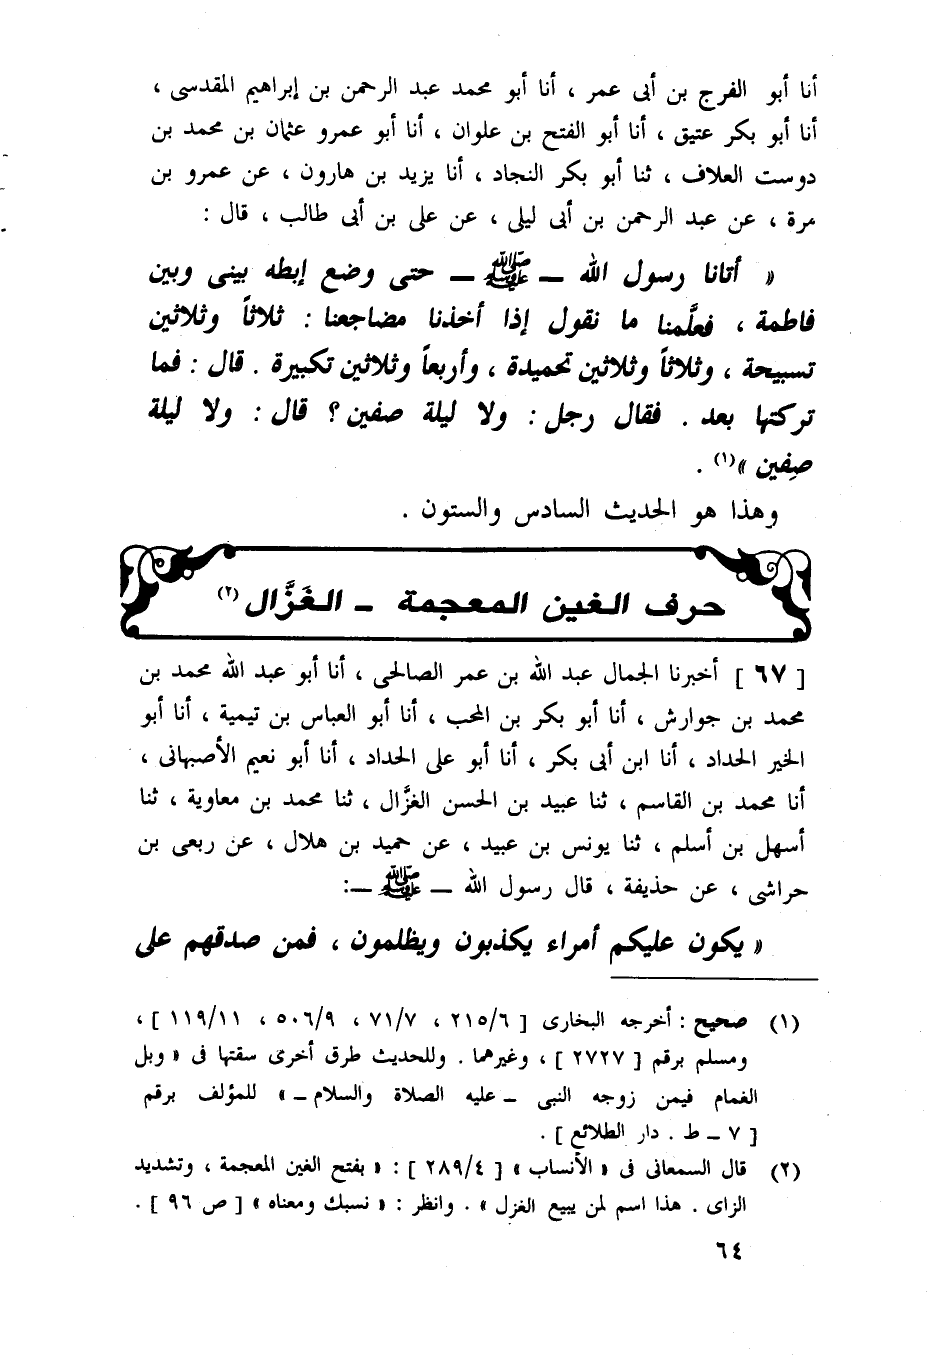 أنا أبو الفرج بن أبى عمر ، أنا أبو محمد عبد الرحمن بن إبراهيم المقدسى ،
أنا أبو بكر عتيق ، أنا أبو الفتح بن علوان ، أنا أبو عمرو عثمان بن محمد بن
دوست العلاف ، ثنا أبو بكر النجاد ، أنا يزيد بن هارون ، عن عمرو بن
مرة ، عن عبد الرحمن بن أبى ليلى ، عن على بن أبى طالب ، قال :
« أتانا رسول الله ــ ﷺ ــ حتى وضع إبطه بينى وبين
فاطمة ، فعلَّمنا ما نقول إذا أخذنا مضاجعنا : ثلاثاً وثلاثين
تسبيحة ، وثلاثاً وثلاثين تحميدة ، وأربعاً وثلاثين تكبيرة . قال : فما
تركتها بعد . فقال رجل : ولا ليلة صفين ؟ قال : ولا ليلة
صِفين »(١) .
وهذا هو الحديث السادس والستون .
حرف الغين المعجمة ــ الغَزَّال (٢)
[ ٦٧ ] أخبرنا الجمال عبد الله بن عمر الصالحى ، أنا أبو عبد الله محمد بن
محمد بن جوارش ، أنا أبو بكر بن المحب ، أنا أبو العباس بن تيمية ، أنا أبو
الخير الحداد ، أنا ابن أبى بكر ، أنا أبو على الحداد ، أنا أبو نعيم الأصبهانى ،
أنا محمد بن القاسم ، ثنا عبيد بن الحسن الغزَّال ، ثنا محمد بن معاوية ، ثنا
أسهل بن أسلم ، ثنا يونس بن عبيد ، عن حميد بن هلال ، عن ربعى بن
حراشى ، عن حذيفة ، قال رسول الله ــ ﷺ ــ :
« يكون عليكم أمراء يكذبون ويظلمون ، فمن صدقهم على
(١) صحيح : أخرجه البخارى [ ٢١٥/٦ ، ٧١/٧ ، ٥٠٦/٩ ، ١١٩/١١ ] ،
ومسلم برقم [ ٢٧٢٧ ] ، وغيرهما . وللحديث طرق أخرى سقتها فى « وبل
الغمام فيمن زوجه النبى ــ عليه الصلاة والسلام ــ » للمؤلف برقم
[ ٧ ــ ط . دار الطلائع ] .
(٢) قال السمعانى فى « الأنساب » [ ٢٨٩/٤ ] : « بفتح الغين المعجمة ، وتشديد
الزاى . هذا اسم لمن يبيع الغزل » . وانظر : « نسبك ومعناه » [ ص ٩٦ ] .
٦٤